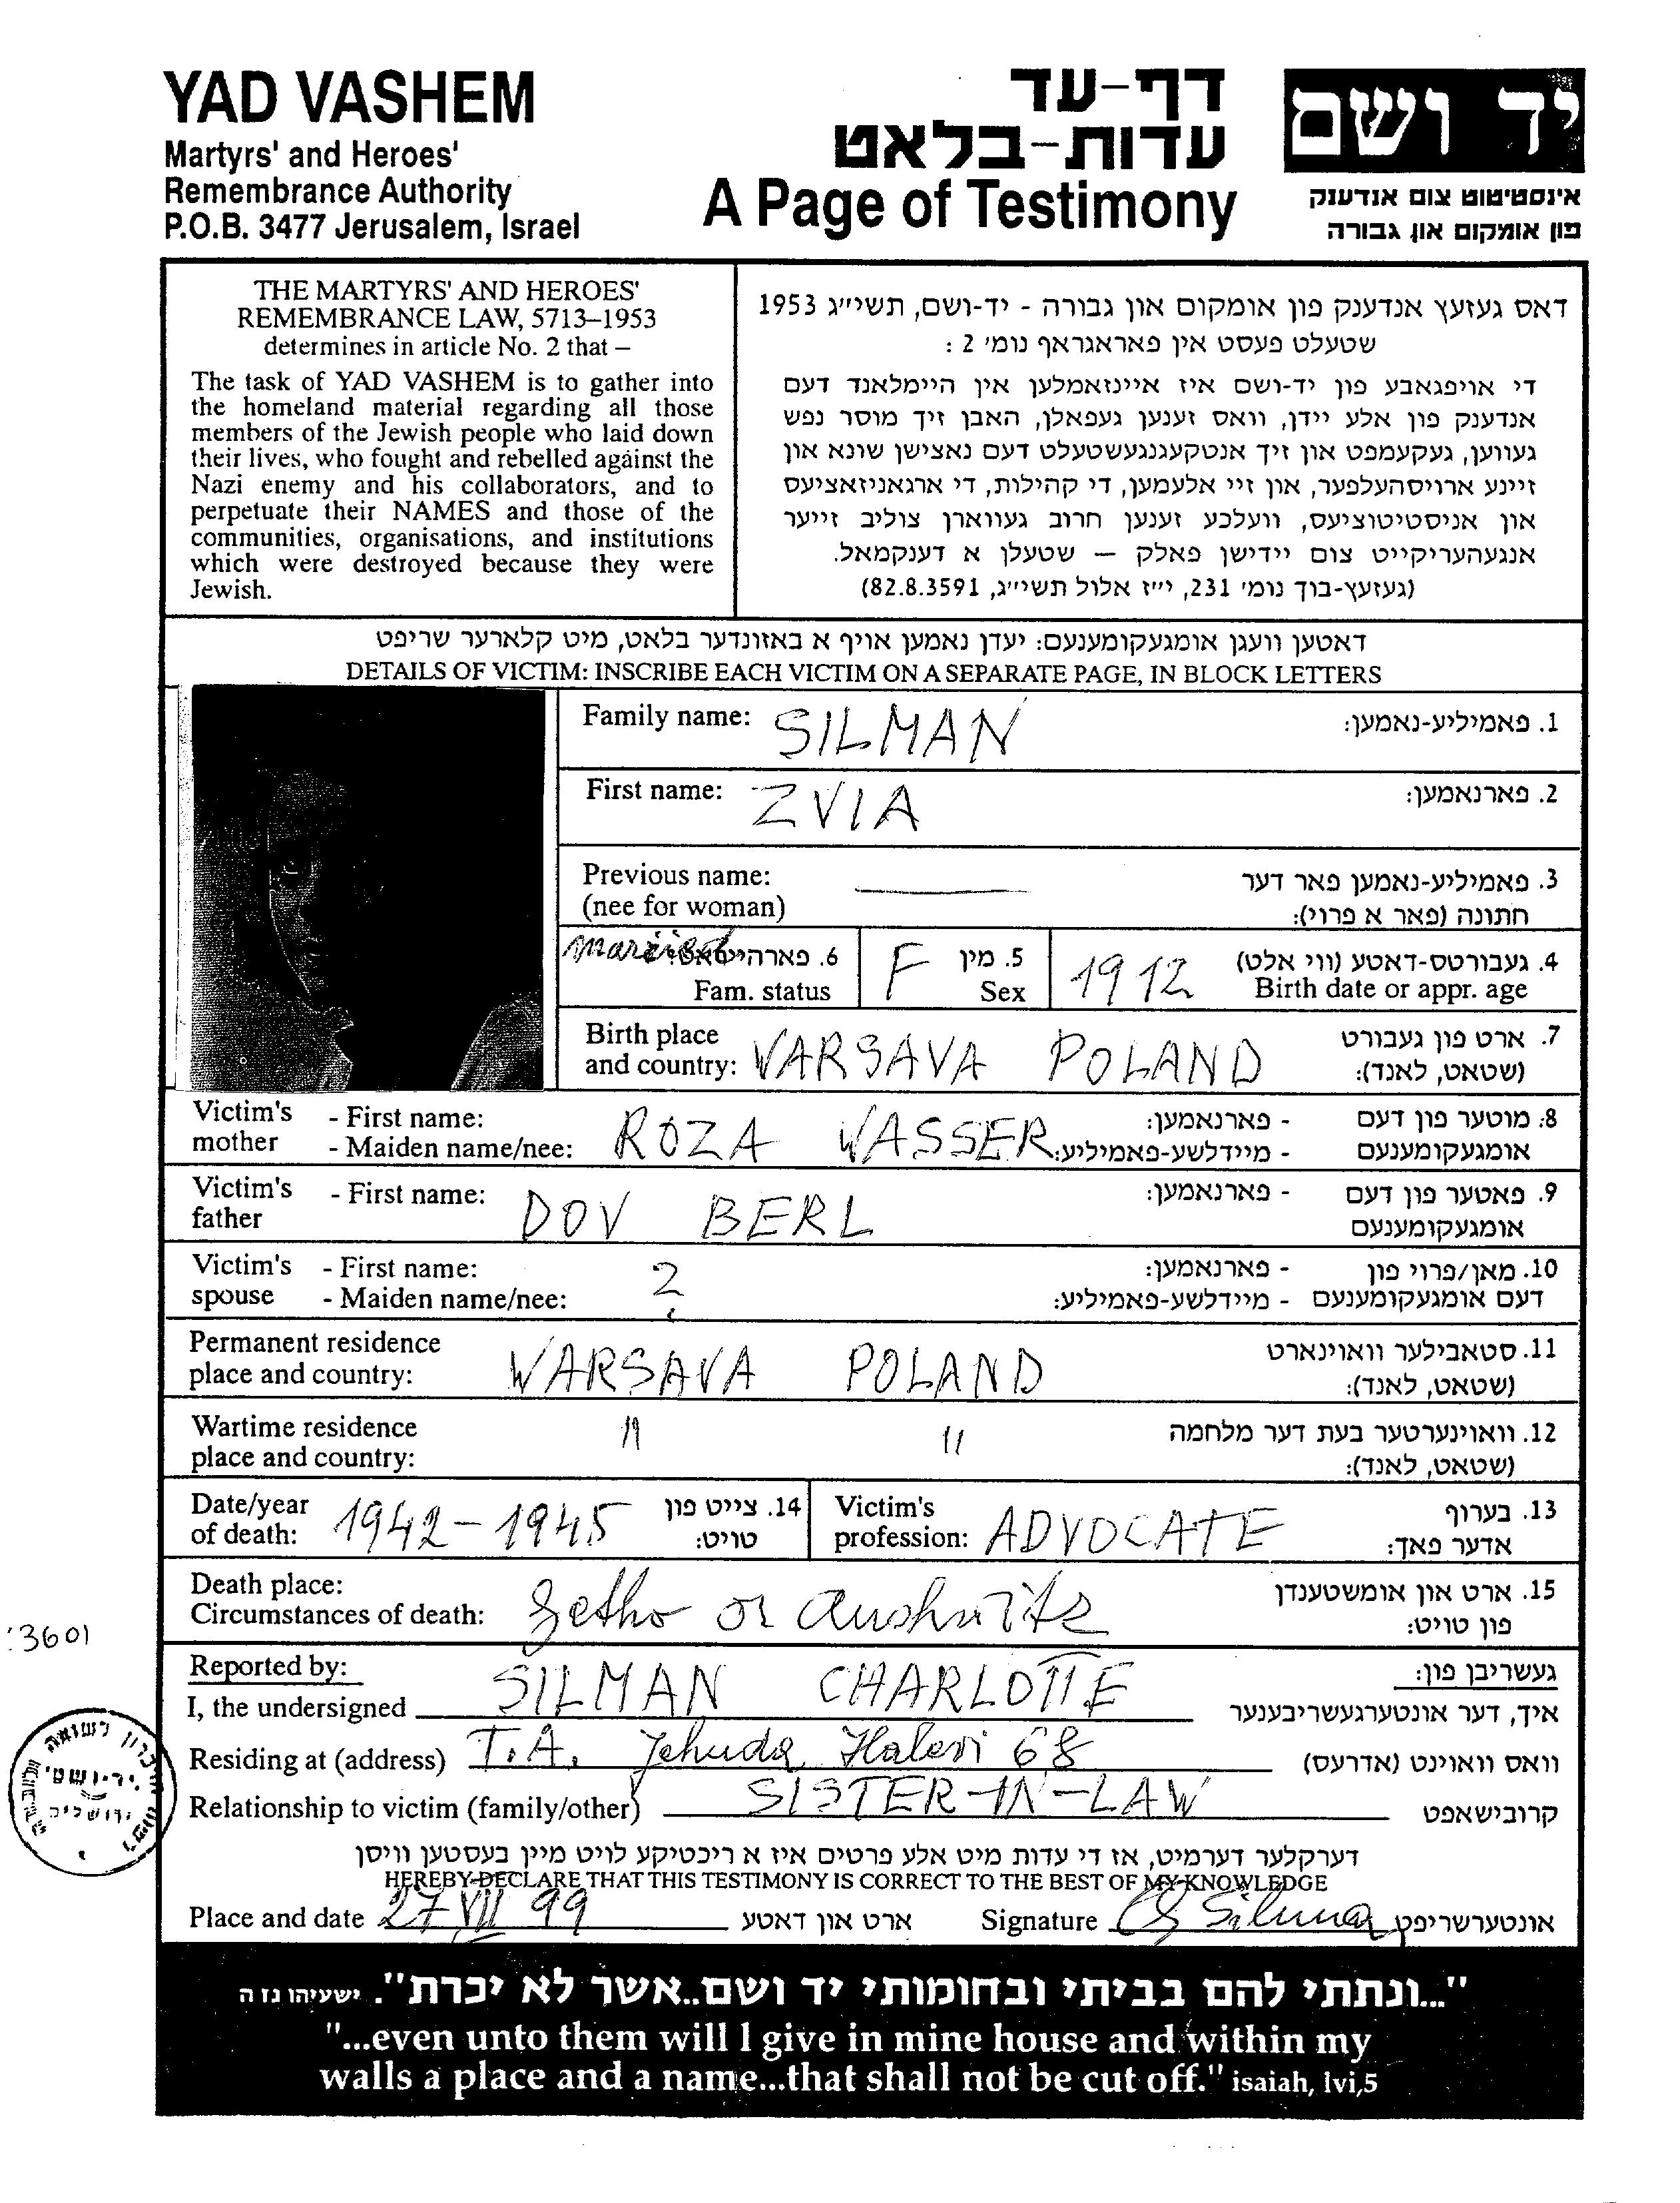 YAD VASHEM
Martyrs' and Heroes'
Remembrance Authority
P.O.B. 3477 Jerusalem, Israel
דף-עד
עדות-בלאט
A Page of Testimony
יד ושם
אינסטיטוט צום אנדענק
פון אומקום און גבורה
THE MARTYRS' AND HEROES'
REMEMBRANCE LAW, 5713–1953
determines in article No. 2 that –
The task of YAD VASHEM is to gather into
the homeland material regarding all those
members of the Jewish people who laid down
their lives, who fought and rebelled against the
Nazi enemy and his collaborators, and to
perpetuate their NAMES and those of the
communities, organisations, and institutions
which were destroyed because they were
Jewish.
דאס געזעץ אנדענק פון אומקום און גבורה - יד-ושם, תשי״ג 1953
שטעלט פעסט אין פאראגראף נומ׳ 2 :
די אויפגאבע פון יד-ושם איז איינזאמלען אין היימלאנד דעם
אנדענק פון אלע יידן, וואס זענען געפאלן, האבן זיך מוסר נפש
געווען, געקעמפט און זיך אנטקעגנגעשטעלט דעם נאצישן שונא און
זיינע ארויסהעלפער, און זיי אלעמען, די קהילות, די ארגאניזאציעס
און אניסטיטוציעס, וועלכע זענען חרוב געווארן צוליב זייער
אנגעהעריקייט צום יידישן פאלק – שטעלן א דענקמאל.
(געזעץ-בוך נומ׳ 231, י״ז אלול תשי״ג, 82.8.3591)
דאטען וועגן אומגעקומענעם: יעדן נאמען אויף א באזונדער בלאט, מיט קלארער שריפט
DETAILS OF VICTIM: INSCRIBE EACH VICTIM ON A SEPARATE PAGE, IN BLOCK LETTERS
Family name: SILMAN 1. פאמיליע-נאמען:
First name: ZVIA 2. פארנאמען:
Previous name: 3. פאמיליע-נאמען פאר דער
(nee for woman) חתונה (פאר א פרוי):
married 6. F 5. מין 1912 4. געבורטס-דאטע (ווי אלט)
Fam. status Sex Birth date or appr. age
Birth place 7. ארט פון געבורט
and country: VARSAVA POLAND (שטאט, לאנד):
Victim's - First name: - פארנאמען: 8. מוטער פון דעם
mother - Maiden name/nee: ROZA WASSER - מיידלשע-פאמיליע: אומגעקומענעם
Victim's - First name: - פארנאמען: 9. פאטער פון דעם
father DOV BERL אומגעקומענעם
Victim's - First name: ? - פארנאמען: 10. מאן/פרוי פון
spouse - Maiden name/nee: - מיידלשע-פאמיליע: דעם אומגעקומענעם
Permanent residence 11. סטאבילער וואוינארט
place and country: WARSAVA POLAND (שטאט, לאנד):
Wartime residence " " 12. וואוינערטער בעת דער מלחמה
place and country: (שטאט, לאנד):
Date/year 14. צייט פון Victim's 13. בערוף
of death: 1942-1945 טויט: profession: ADVOCATE אדער פאך:
Death place: 15. ארט און אומשטענדן
Circumstances of death: Getho or Aushwitz פון טויט:
3601
Reported by: געשריבן פון:
I, the undersigned SILMAN CHARLOTTE איך, דער אונטערגעשריבענער
Residing at (address) T.A. Jehuda Halevi 68 וואס וואוינט (אדרעס)
Relationship to victim (family/other) SISTER-IN-LAW קרובישאפט
דערקלער דערמיט, אז די עדות מיט אלע פרטים איז א ריכטיקע לויט מיין בעסטען וויסן
HEREBY DECLARE THAT THIS TESTIMONY IS CORRECT TO THE BEST OF MY KNOWLEDGE
Place and date 27 VII 99 ארט און דאטע Signature Ch Silman אונטערשריפט
"...ונתתי להם בביתי ובחומותי יד ושם..אשר לא יכרת". ישעיהו נז ה
"...even unto them will I give in mine house and within my
walls a place and a name...that shall not be cut off." isaiah, lvi,5